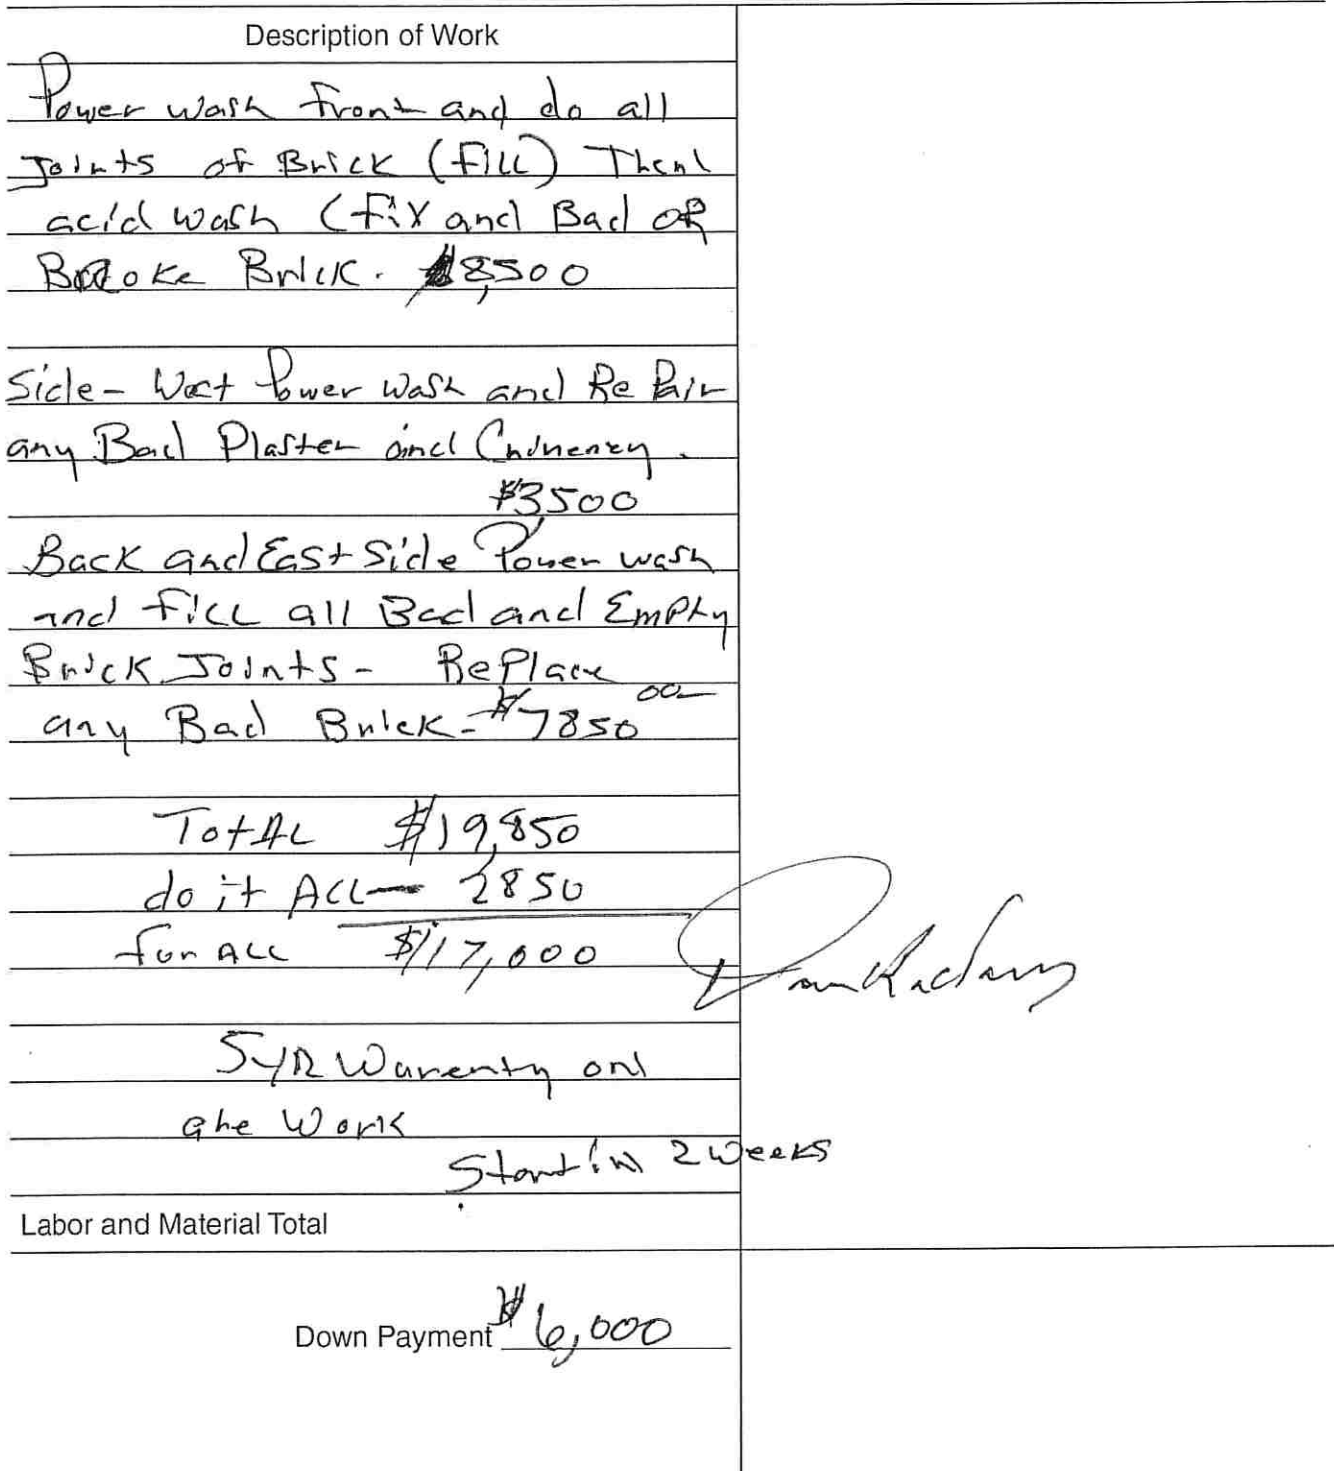 Description of Work
Power wash front and do all
Joints of Brick (FILL) Then
acid wash (Fix and Bad OR
Broke Brick. $8,500
Side - West Power Wash and RePair
any Bad Plaster and
$3,500
Back and East Side Power wash
and FILL all Bad and Empty
Brick Joints - RePlace
any Bad Brick - $7850 00
TotAL $19,850
do it ALL — 2850
for ALL $17,000
5 yR Warenty on
the Work
Start in 2 weeks
Labor and Material Total
Down Payment $6,000